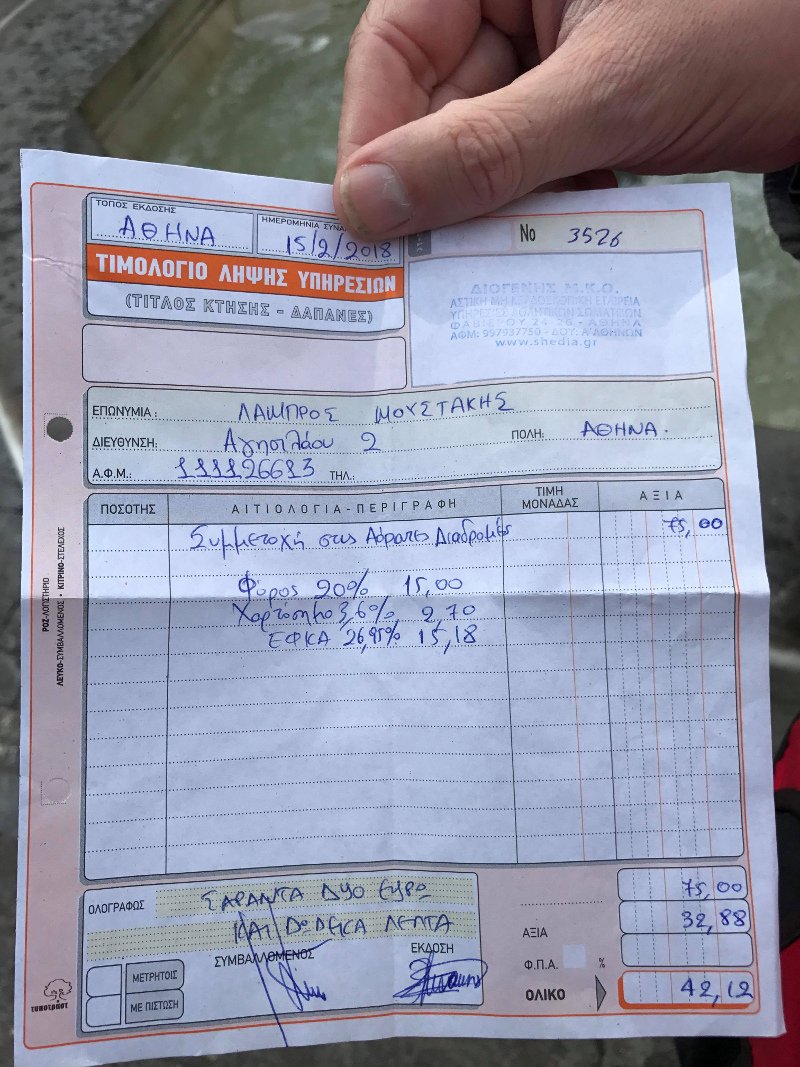 ΤΟΠΟΣ ΕΚΔΟΣΗΣ
ΑΘΗΝΑ
ΗΜΕΡΟΜΗΝΙΑ ΣΥΝΑ
15/2/2018
No 3526
ΤΙΜΟΛΟΓΙΟ ΛΗΨΗΣ ΥΠΗΡΕΣΙΩΝ
(ΤΙΤΛΟΣ ΚΤΗΣΗΣ - ΔΑΠΑΝΕΣ)
ΔΙΟΓΕΝΗΣ Μ.Κ.Ο.
ΑΣΤΙΚΗ ΜΗ ΚΕΡΔΟΣΚΟΠΙΚΗ ΕΤΑΙΡΕΙΑ
ΥΠΗΡΕΣΙΕΣ ΑΘΛΗΤΙΚΩΝ ΣΩΜΑΤΕΙΩΝ
24 - 26 - ΑΘΗΝΑ
ΑΦΜ: 997937750 - ΔΟΥ: Α' ΑΘΗΝΩΝ
www.shedia.gr
ΕΠΩΝΥΜΙΑ: ΛΑΜΠΡΟΣ ΜΟΥΣΤΑΚΗΣ
ΔΙΕΥΘΥΝΣΗ: Αγησιλάου 2 ΠΟΛΗ: ΑΘΗΝΑ.
Α.Φ.Μ.: 111126613 ΤΗΛ.:
ΠΟΣΟΤΗΣ ΑΙΤΙΟΛΟΓΙΑ - ΠΕΡΙΓΡΑΦΗ ΤΙΜΗ ΜΟΝΑΔΑΣ ΑΞΙΑ
Συμμετοχή στις Αόρατες Διαδρομές 75,00
Φόρος 20% 15,00
Χαρτόσημο 3,6% 2,70
ΕΦΚΑ 26,95% 15,18
ΡΟΖ-ΛΟΓΙΣΤΗΡΙΟ
ΛΕΥΚΟ-ΣΥΜΒΑΛΛΟΜΕΝΟΣ • ΚΙΤΡΙΝΟ-ΣΤΕΛΕΧΟΣ
ΟΛΟΓΡΑΦΩΣ ΣΑΡΑΝΤΑ ΔΥΟ ΕΥΡΩ
ΚΑΙ ΔΩΔΕΚΑ ΛΕΠΤΑ
75,00
ΑΞΙΑ 32,88
Φ.Π.Α. %
ΟΛΙΚΟ 42,12
ΣΥΜΒΑΛΛΟΜΕΝΟΣ ΕΚΔΟΣΗ
ΜΕΤΡΗΤΟΙΣ
ΜΕ ΠΙΣΤΩΣΗ
τυποτράστ